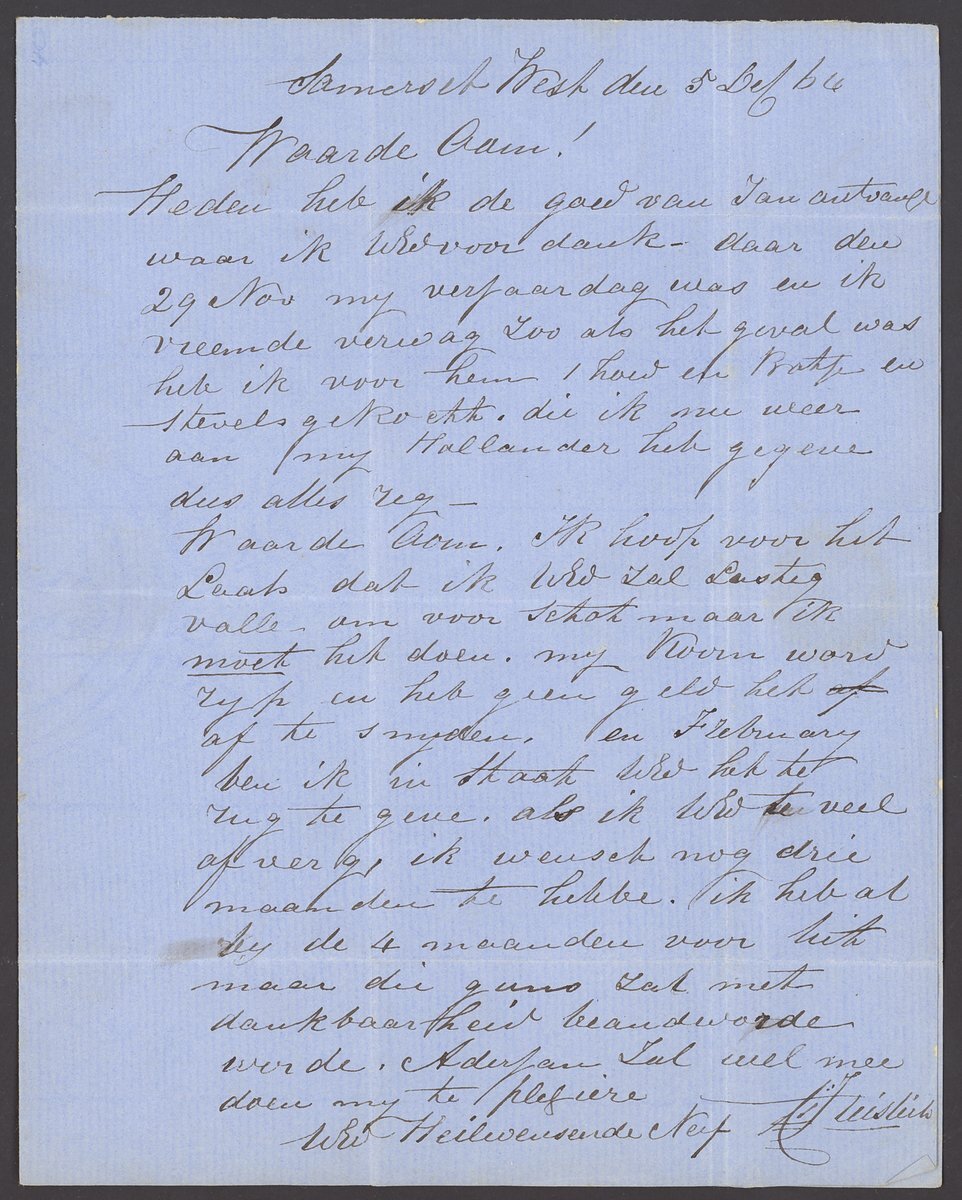 Somerset West den 5 Des 64
Waarde Oom!
Heden heb ik de goed van Jan ontvange
waar ik UEd voor dank - daar den
29 Nov my verjaardag was en ik
vreemde verwag Zoo als het geval was
heb ik voor hem 1 hoed en Batje en
stevels gekocht. die ik nu weer
aan my Hollander heb gegeve
dus alles reg -
Waarde Oom. Ik hoop voor het
Laats dat ik UEd Zal Lastig
valle om voor Schot maar ik
moet het doen. my Koorn word
ryp en heb geen geld het af
af te snyden. en February
ben ik in staat UEd het te
rug te geve. als ik UEd te veel
af verg, ik wensch nog drie
maanden te hebbe. ik heb al
by de 4 maanden voor
maar die guns Zal met
dankbaarheid beandworde
worde. Aderjan Zal wel mee
doen my te plesiere
UEd Heilwensende Nef